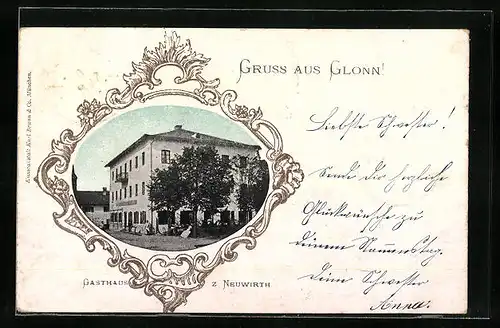 GRUSS AUS GLONN!
Liebste Schwester!
Sende dir herzliche
Glückwünsche zu
deinem Namenstag.
Deine Schwester
Anna.
GASTHAUS Z NEUWIRTH
Kunstanstalt Karl Braun & Co. München.